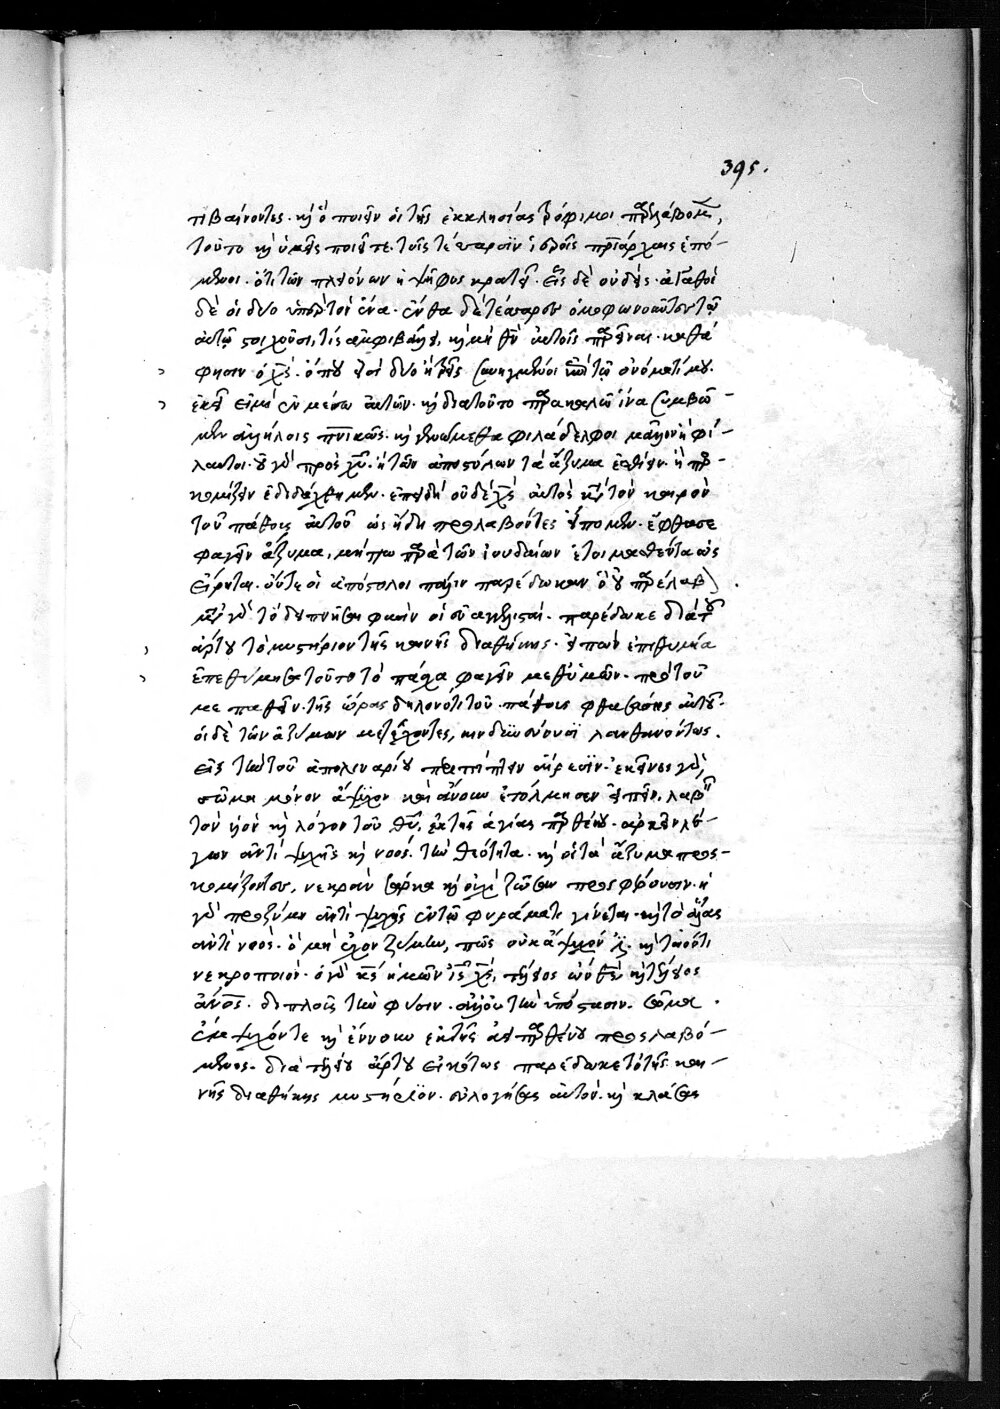 395.
τιβαίνοντες. κὶ ὃ ποιεῖν οἱ τῆς ἐκκλησίας τρόφιμοι
τοῦτο κὶ ὑμεῖς ποιεῖτε. τοῖς τέσσαρσϊν πριάρχαις ἑπό-
μενοι. ὅτι τῶν πλειόνων ἡ ψῆφος κρατεῖ. εἷς δὲ οὐδείς. ἀγαθοὶ
δὲ οἱ δύο ὑπὲρ τὸν ἕνα. ἔνθα δὲ τέσσαρες ὁμοφωνοῦντες τῷ
αὐτῷ στοιχοῦσι, τίς ἀμφιβάλλει, κὶ μὴ θν αὐτοῖς καθά
φησιν ὁ χς. ὅπου εἰσὶ δύο ἢ τρεῖς συνηγμένοι τῷ ὀνόματί μου.
ἐκεῖ εἰμὶ ἐν μέσω αὐτῶν. κὶ διατοῦτο παρακαλῶ ἵνα συμβῶ-
μεν ἀλλήλοις πνικῶς. κὶ γενώμεθα φιλάδελφοι μᾶλλον ἢ φί-
λαυτοι. οὐ γὰρ πρὸς χυ. ἢ τῶν ἀποστόλων τὰ ἄζυμα ἐσθίειν. ἢ προσ
κομίζειν ἐδιδάχθημεν. ἐπειδὴ οὐδὲ χς αὐτὸς κατὰ τὸν καιρὸν
τοῦ πάθους αὐτοῦ ὡς ἤδη προλαβόντες εἴπομεν. ἔφθασε
φαγεῖν ἄζυμα, μήπω παρὰ τῶν ἰουδαίων ἑτοιμασθέντα ὡς
εἴρηται. οὔτε οἱ ἀπόστολοι παρέδωκαν ὃ οὐ παρέλαβ
μετὰ γὰρ τὸ δειπνῆσαι φασὶν οἱ εὐαγγελισταί. παρέδωκε διὰ τοῦ
ἄρτου τὸ μυστήριον τῆς καινῆς διαθήκης. εἰπὼν ἐπιθυμία
ἐπεθύμησα τοῦτο τὸ πάσχα φαγεῖν μεθ' ὑμῶν. πρὸ τοῦ
με παθεῖν. τῆς ὥρας δηλονότι τοῦ πάθους φθασάσης αὐτοῦ.
οἱ δὲ τῶν ἀζύμων μετέχοντες, κινδυνεύουσϊ λανθανόντως.
εἰς τὴν τοῦ ἀπολιναρίου περιπίπτειν αἵρεσϊν. ἐκεῖνος γὰρ,
σῶμα μόνον ἄψυχον καὶ ἄνουν ἐτόλμησεν εἰπεῖν, λαβεῖν
τὸν υἱὸν κὶ λόγον τοῦ θυ, ἐκ τῆς ἁγίας παρθένου. ἀρκεῖν λέ-
γων ἀντὶ ψυχῆς κὶ νοός. τὴν θεότητα. κὶ οἱ τὰ ἄζυμα προσ-
κομίζοντες, νεκρὰν σάρκα κὶ οὐχὶ ζῶσαν προσφέρουσιν. ἡ
γὰρ προζύμη ἀντὶ ψυχῆς ἐν τῷ φυράματι γίνεται. κὶ τὸ ἅλας
ἀντὶ νοός. ὁ μὴ ἔχον ζύμην, πῶς οὐκ ἄψυχόν κὶ
νεκροποιόν. ὁ γὰρ κς ἡμῶν ις χς, τέλειος ὢν θς, κὶ τέλειος
ανος. διπλοῦς τὴν φύσιν. ἀλλ' οὐ τὴν ὑπόστασιν. σῶμα
ἔμψυχόν τε κὶ ἔννουν ἐκ τῆς παρθένου προσλαβό-
μενος. διὰ τελείου ἄρτου εἰκότως παρέδωκε τὸ τῆς και-
νῆς διαθήκης μυστήριον. εὐλογήσας αὐτὸν. κὶ κλάσας